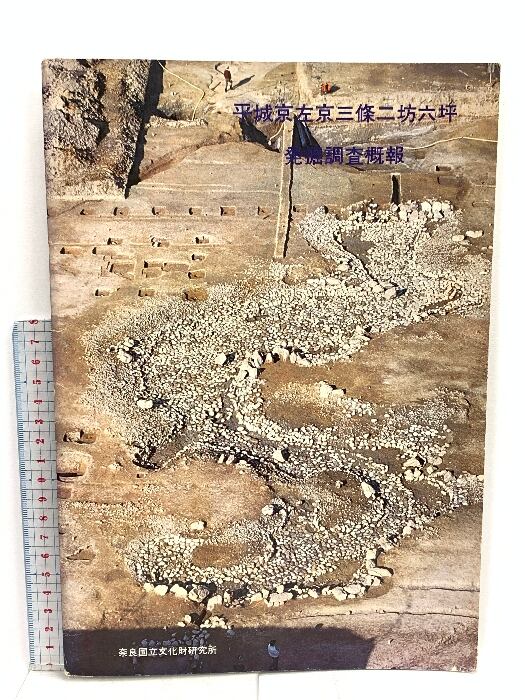 平城京左京三條二坊六坪
発掘調査概報
奈良国立文化財研究所